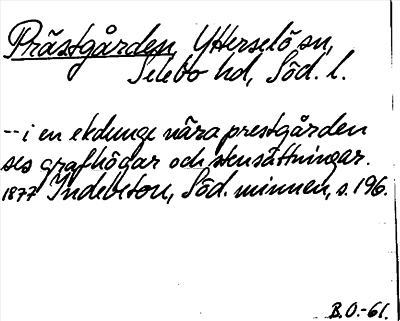 Prästgården, Ytterselö sn,
Selebo hd, Söd. l.
-- i en ekdunge nära prestgården
ses grafhögar och stensättningar.
1877 Indebetou, Söd. minnen, s. 196.
B.O.-61.